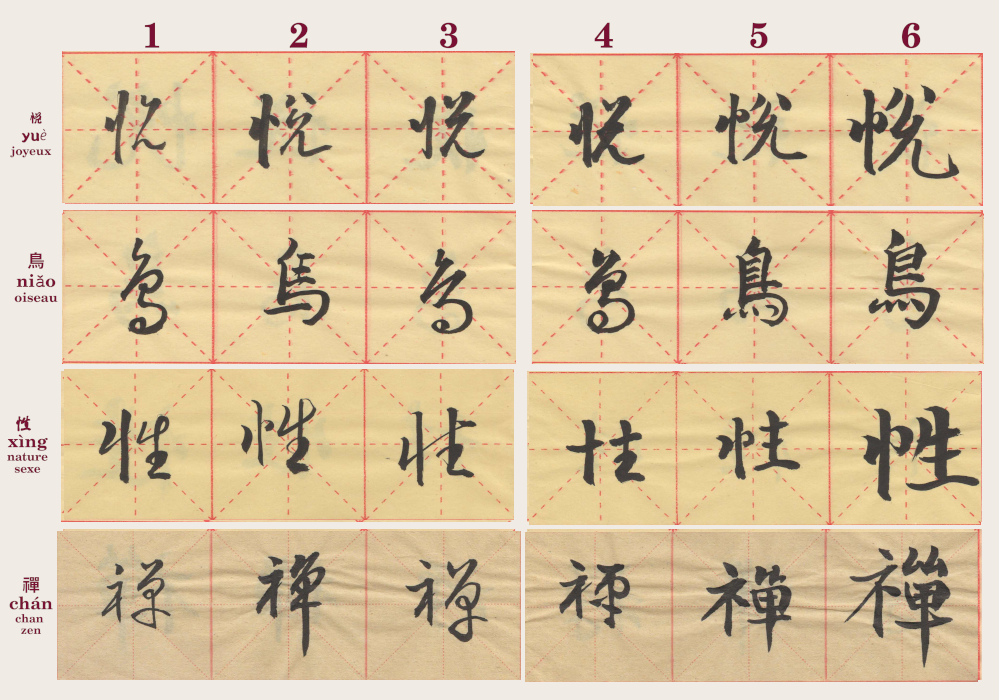 1 2 3 4 5 6
悅
yuè
joyeux
悅 悅 悅 悅 悅 悅
鳥
niǎo
oiseau
鳥 鳥 鳥 鳥 鳥 鳥
性
xìng
nature
sexe
性 性 性 性 性 性
禪
chán
chan
zen
禪 禪 禪 禪 禪 禪